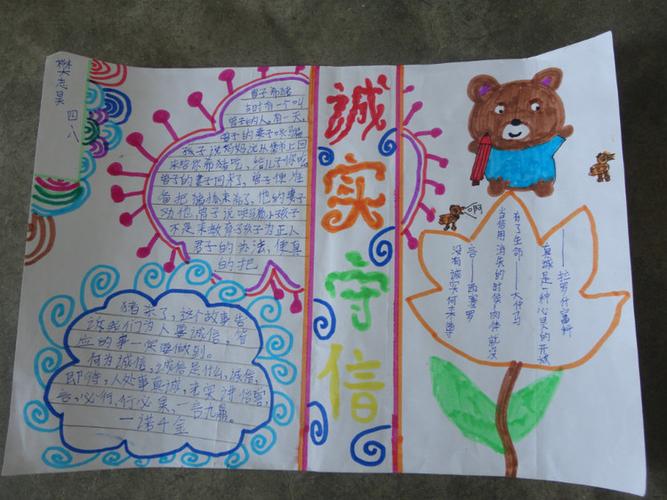 樊志昊
四、八
曾子杀猪
古时有一个叫
曾子的人。有一天,
曾子的妻子哄骗
孩子说妈妈说从集市上回
来给你杀猪吃,
曾子的妻子回来了,曾子便
他的妻子
对他曾子说
不是来教育孩子为正人
君子的办法,便真
的把
猪杀了,这个故事告
诉我们为人要诚信,答
应的事一定要做到。
何为诚信,诚信是什么,诚信,
即待人处事真诚,老实讲信誉,
言必行,行必果,一言九鼎,
一诺千金
誠实守信
啊
——拉罗什富科
真诚是一种心灵的开放
有了生命——大仲马
当信用消失的时候,肉体就没
言——西塞罗
没有诚实何来尊